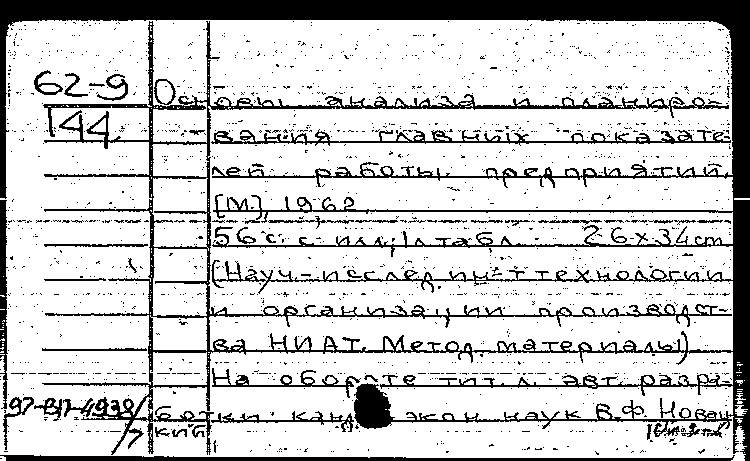 62-9 Основы анализа и планиро-
144 вания главных показате
лей работы предприятий.
[М.], 1962.
56 с. с илл.; 1 л. табл. 26х34 cm
(Науч.-исслед. ин-т технологии
и организации производст-
ва НИАТ. Метод. материалы)
На обороте тит. л. авт. разра-
ботки: канд. экон. наук В.Ф. Новац
кий